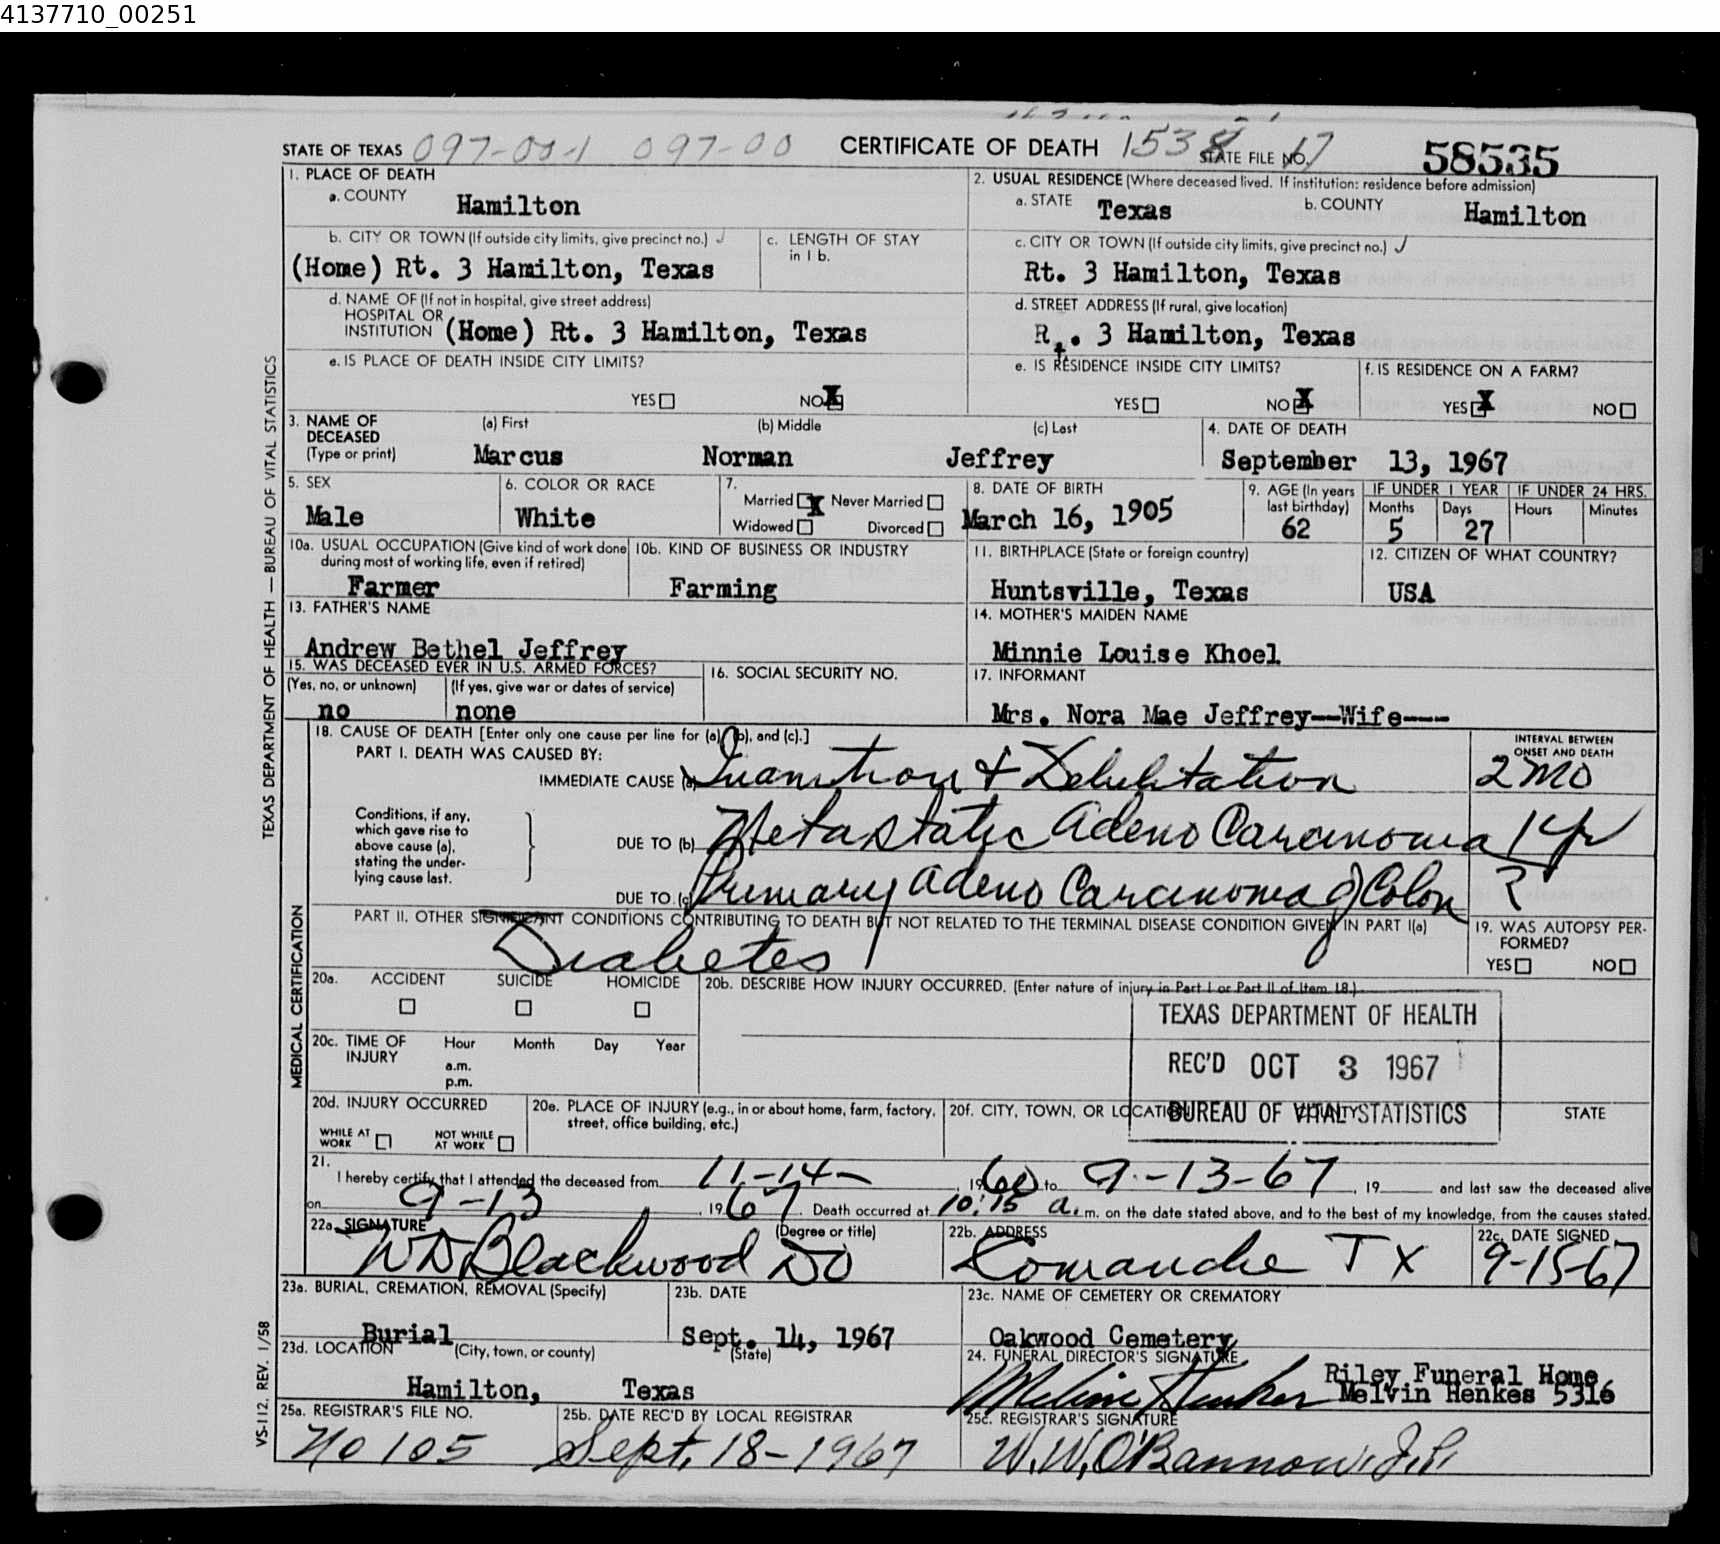 4137710_00251
STATE OF TEXAS 097-00-1 097-00 CERTIFICATE OF DEATH 1538 STATE FILE NO. 17 58535
1. PLACE OF DEATH
a. COUNTY Hamilton
2. USUAL RESIDENCE (Where deceased lived. If institution: residence before admission)
a. STATE Texas b. COUNTY Hamilton
b. CITY OR TOWN (If outside city limits, give precinct no.) ✓
(Home) Rt. 3 Hamilton, Texas
c. LENGTH OF STAY
in 1 b.
c. CITY OR TOWN (If outside city limits, give precinct no.) ✓
Rt. 3 Hamilton, Texas
d. NAME OF (If not in hospital, give street address)
HOSPITAL OR
INSTITUTION (Home) Rt. 3 Hamilton, Texas
d. STREET ADDRESS (If rural, give location)
Rt. 3 Hamilton, Texas
e. IS PLACE OF DEATH INSIDE CITY LIMITS?
YES NO X
e. IS RESIDENCE INSIDE CITY LIMITS?
YES NO X
f. IS RESIDENCE ON A FARM?
YES X NO
3. NAME OF
DECEASED
(Type or print)
(a) First (b) Middle (c) Last
Marcus Norman Jeffrey
4. DATE OF DEATH
September 13, 1967
5. SEX
Male
6. COLOR OR RACE
White
7.
Married X Never Married
Widowed Divorced
8. DATE OF BIRTH
March 16, 1905
9. AGE (In years
last birthday)
62
IF UNDER 1 YEAR
Months Days
5 27
IF UNDER 24 HRS.
Hours Minutes
10a. USUAL OCCUPATION (Give kind of work done
during most of working life, even if retired)
Farmer
10b. KIND OF BUSINESS OR INDUSTRY
Farming
11. BIRTHPLACE (State or foreign country)
Huntsville, Texas
12. CITIZEN OF WHAT COUNTRY?
USA
13. FATHER'S NAME
Andrew Bethel Jeffrey
14. MOTHER'S MAIDEN NAME
Minnie Louise Khoel
15. WAS DECEASED EVER IN U.S. ARMED FORCES?
(Yes, no, or unknown) (If yes, give war or dates of service)
no none
16. SOCIAL SECURITY NO.
17. INFORMANT
Mrs. Nora Mae Jeffrey—Wife---
18. CAUSE OF DEATH [Enter only one cause per line for (a), (b), and (c).]
PART I. DEATH WAS CAUSED BY:
INTERVAL BETWEEN
ONSET AND DEATH
IMMEDIATE CAUSE (a) Inanition & Debilitation 2 mo
Conditions, if any,
which gave rise to
above cause (a),
stating the under-
lying cause last.
DUE TO (b) Metastatic Adeno Carcinoma 1 yr
DUE TO (c) Primary Adeno Carcinoma of Colon ?
PART II. OTHER SIGNIFICANT CONDITIONS CONTRIBUTING TO DEATH BUT NOT RELATED TO THE TERMINAL DISEASE CONDITION GIVEN IN PART I(a)
Diabetes
19. WAS AUTOPSY PER-
FORMED?
YES NO
20a. ACCIDENT SUICIDE HOMICIDE
20b. DESCRIBE HOW INJURY OCCURRED. (Enter nature of injury in Part I or Part II of Item 18.)
TEXAS DEPARTMENT OF HEALTH
REC'D OCT 3 1967
BUREAU OF VITAL STATISTICS
20c. TIME OF
INJURY
Hour Month Day Year
a.m.
p.m.
20d. INJURY OCCURRED
WHILE AT
WORK
NOT WHILE
AT WORK
20e. PLACE OF INJURY (e.g., in or about home, farm, factory,
street, office building, etc.)
20f. CITY, TOWN, OR LOCATION COUNTY STATE
21.
I hereby certify that I attended the deceased from 11-14- , 1960 to 9-13-67 , 19 and last saw the deceased alive
on 9-13 , 1967. Death occurred at 10:15 a.m. on the date stated above, and to the best of my knowledge, from the causes stated.
22a. SIGNATURE (Degree or title)
WD Blackwood DO
22b. ADDRESS
Comanche TX
22c. DATE SIGNED
9-15-67
23a. BURIAL, CREMATION, REMOVAL (Specify)
Burial
23b. DATE
Sept. 14, 1967
23c. NAME OF CEMETERY OR CREMATORY
Oakwood Cemetery
23d. LOCATION (City, town, or county) (State)
Hamilton, Texas
24. FUNERAL DIRECTOR'S SIGNATURE
Melvin Henkes
Riley Funeral Home
Melvin Henkes 5316
25a. REGISTRAR'S FILE NO.
No 105
25b. DATE REC'D BY LOCAL REGISTRAR
Sept. 18-1967
25c. REGISTRAR'S SIGNATURE
W.W. O'Bannow, J.P.
TEXAS DEPARTMENT OF HEALTH — BUREAU OF VITAL STATISTICS
MEDICAL CERTIFICATION
VS-112, REV. 1/58